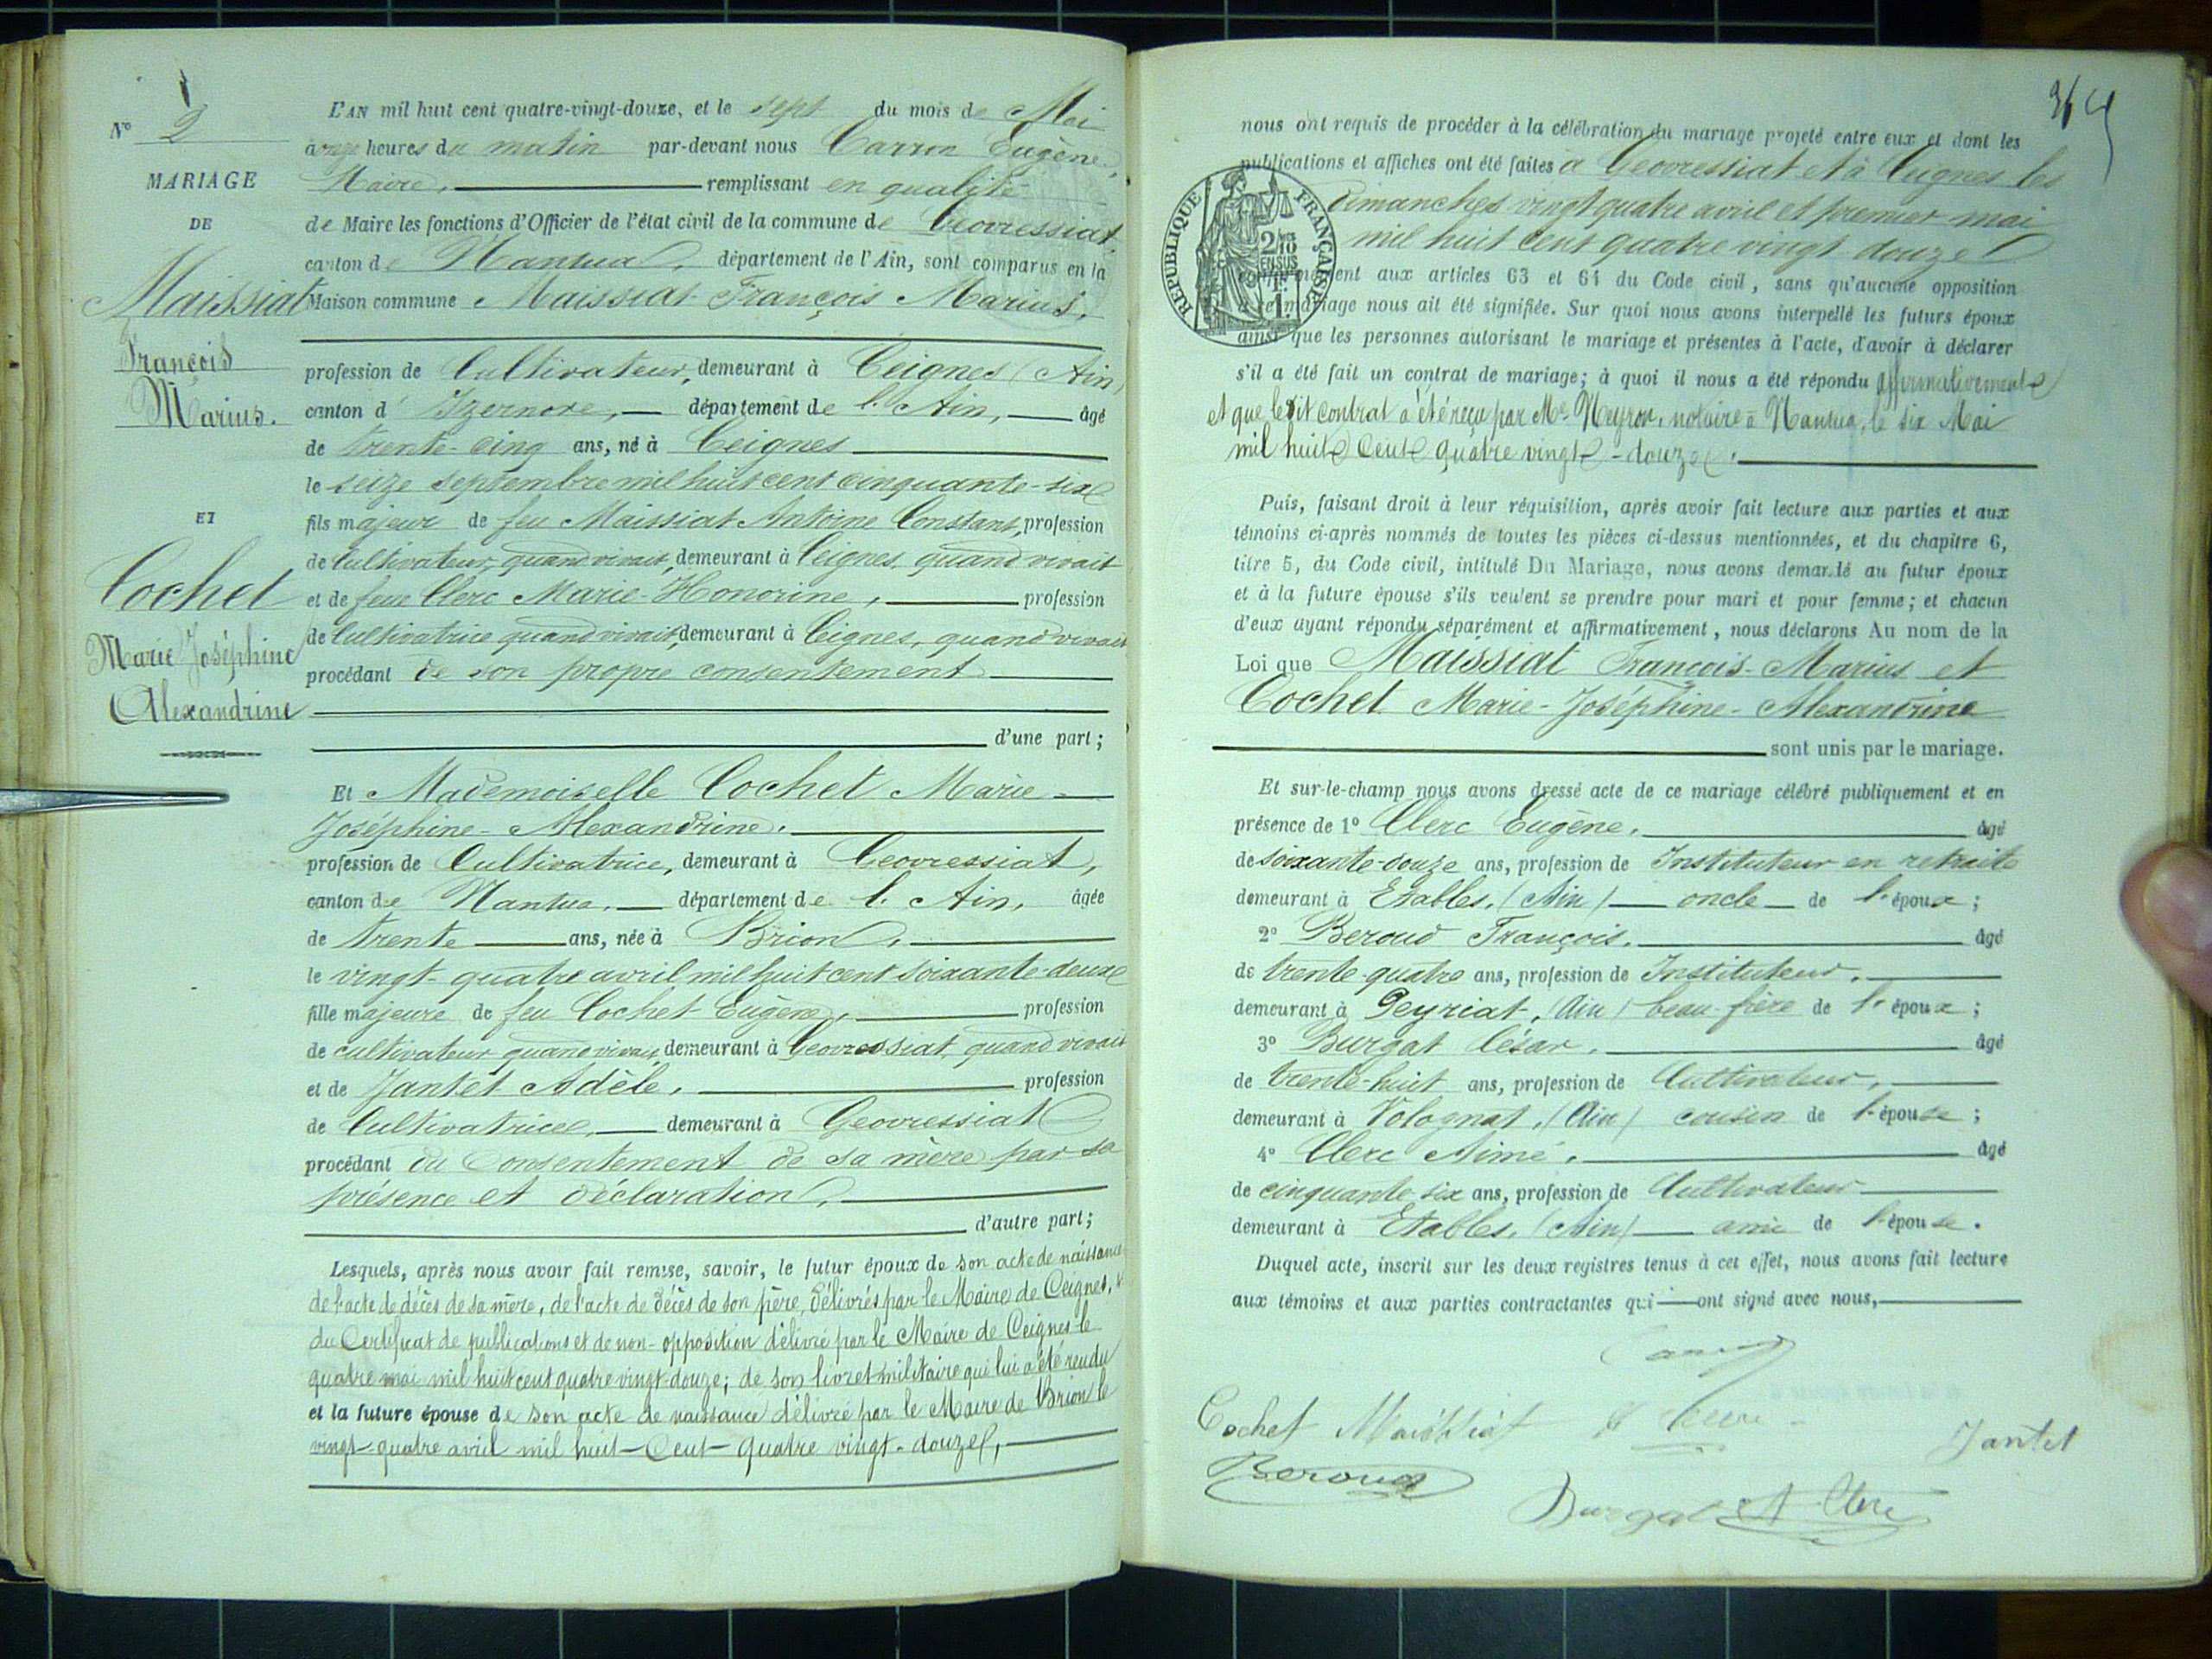 N° 2
MARIAGE
DE
Maissiat
François
Marius.
ET
Cochet
Marie Joséphine
Alexandrine
L'AN mil huit cent quatre-vingt-douze, et le sept du mois de Mai
à onze heures du matin par-devant nous Carron Eugène,
Maire, remplissant en qualité
de Maire les fonctions d'Officier de l'état civil de la commune de Geovressiat,
canton de Nantua, département de l'Ain, sont comparus en la
Maison commune Maissiat François Marius,
profession de Cultivateur, demeurant à Ceignes (Ain)
canton d' Izernore, département de l'Ain, âgé
de trente-cinq ans, né à Ceignes
le seize septembre mil huit cent cinquante-six
fils majeur de feu Maissiat Antoine Constant, profession
de Cultivateur quand vivait, demeurant à Ceignes, quand vivait
et de feue Clerc Marie-Honorine, profession
de Cultivatrice quand vivait, demeurant à Ceignes, quand vivait
procédant de son propre consentement
d'une part;
Et Mademoiselle Cochet Marie-
Joséphine-Alexandrine.
profession de Cultivatrice, demeurant à Geovressiat,
canton de Nantua, département de l'Ain, âgée
de trente ans, née à Brion,
le vingt-quatre avril mil huit cent soixante-deux
fille majeure de feu Cochet Eugène, profession
de cultivateur quand vivait, demeurant à Geovressiat, quand vivait
et de Jantet Adèle, profession
de Cultivatrice, demeurant à Geovressiat
procédant du Consentement de sa mère par sa
présence et déclaration,
d'autre part;
Lesquels, après nous avoir fait remise, savoir, le futur époux de son acte de naissance
de l'acte de décès de sa mère, de l'acte de décès de son père, délivrés par le Maire de Ceignes,
du Certificat de publications et de non-opposition délivré par le Maire de Ceignes le
quatre mai mil huit cent quatre vingt douze; de son livret militaire qui lui a été rendu
et la future épouse de son acte de naissance délivré par le Maire de Brion le
vingt-quatre avril mil huit-Cent-quatre vingt-douze,
nous ont requis de procéder à la célébration du mariage projeté entre eux et dont les
publications et affiches ont été faites à Geovressiat et à Ceignes les
Dimanches vingt quatre avril et premier mai
mil huit cent quatre vingt douze
REPUBLIQUE FRANÇAISE
conformément aux articles 63 et 64 du Code civil, sans qu'aucune opposition
à ce mariage nous ait été signifiée. Sur quoi nous avons interpellé les futurs époux
ainsi que les personnes autorisant le mariage et présentes à l'acte, d'avoir à déclarer
s'il a été fait un contrat de mariage; à quoi il nous a été répondu affirmativement
et que le dit contrat a été reçu par Me Neyron, notaire à Nantua, le six Mai
mil huit Cent quatre vingt-douze.
Puis, faisant droit à leur réquisition, après avoir fait lecture aux parties et aux
témoins ci-après nommés de toutes les pièces ci-dessus mentionnées, et du chapitre 6,
titre 5, du Code civil, intitulé Du Mariage, nous avons demandé au futur époux
et à la future épouse s'ils veulent se prendre pour mari et pour femme; et chacun
d'eux ayant répondu séparément et affirmativement, nous déclarons Au nom de la
Loi que Maissiat François-Marius et
Cochet Marie-Joséphine-Alexandrine
sont unis par le mariage.
Et sur-le-champ nous avons dressé acte de ce mariage célébré publiquement et en
présence de 1° Clerc Eugène, âgé
de soixante-douze ans, profession de Instituteur en retraite
demeurant à Etables, (Ain) oncle de l'époux;
2° Beroud François. âgé
de trente quatre ans, profession de Instituteur.
demeurant à Peyriat, (Ain) beau-frère de l'époux;
3° Burgat César, âgé
de trente-huit ans, profession de Cultivateur,
demeurant à Volognat, (Ain) cousin de l'épouse;
4° Clerc Aimé, âgé
de cinquante six ans, profession de Cultivateur
demeurant à Etables, (Ain) ami de l'épouse.
Duquel acte, inscrit sur les deux registres tenus à cet effet, nous avons fait lecture
aux témoins et aux parties contractantes qui ont signé avec nous,
Cochet Maissiat Jantet
Beroud
Burgat A Clerc